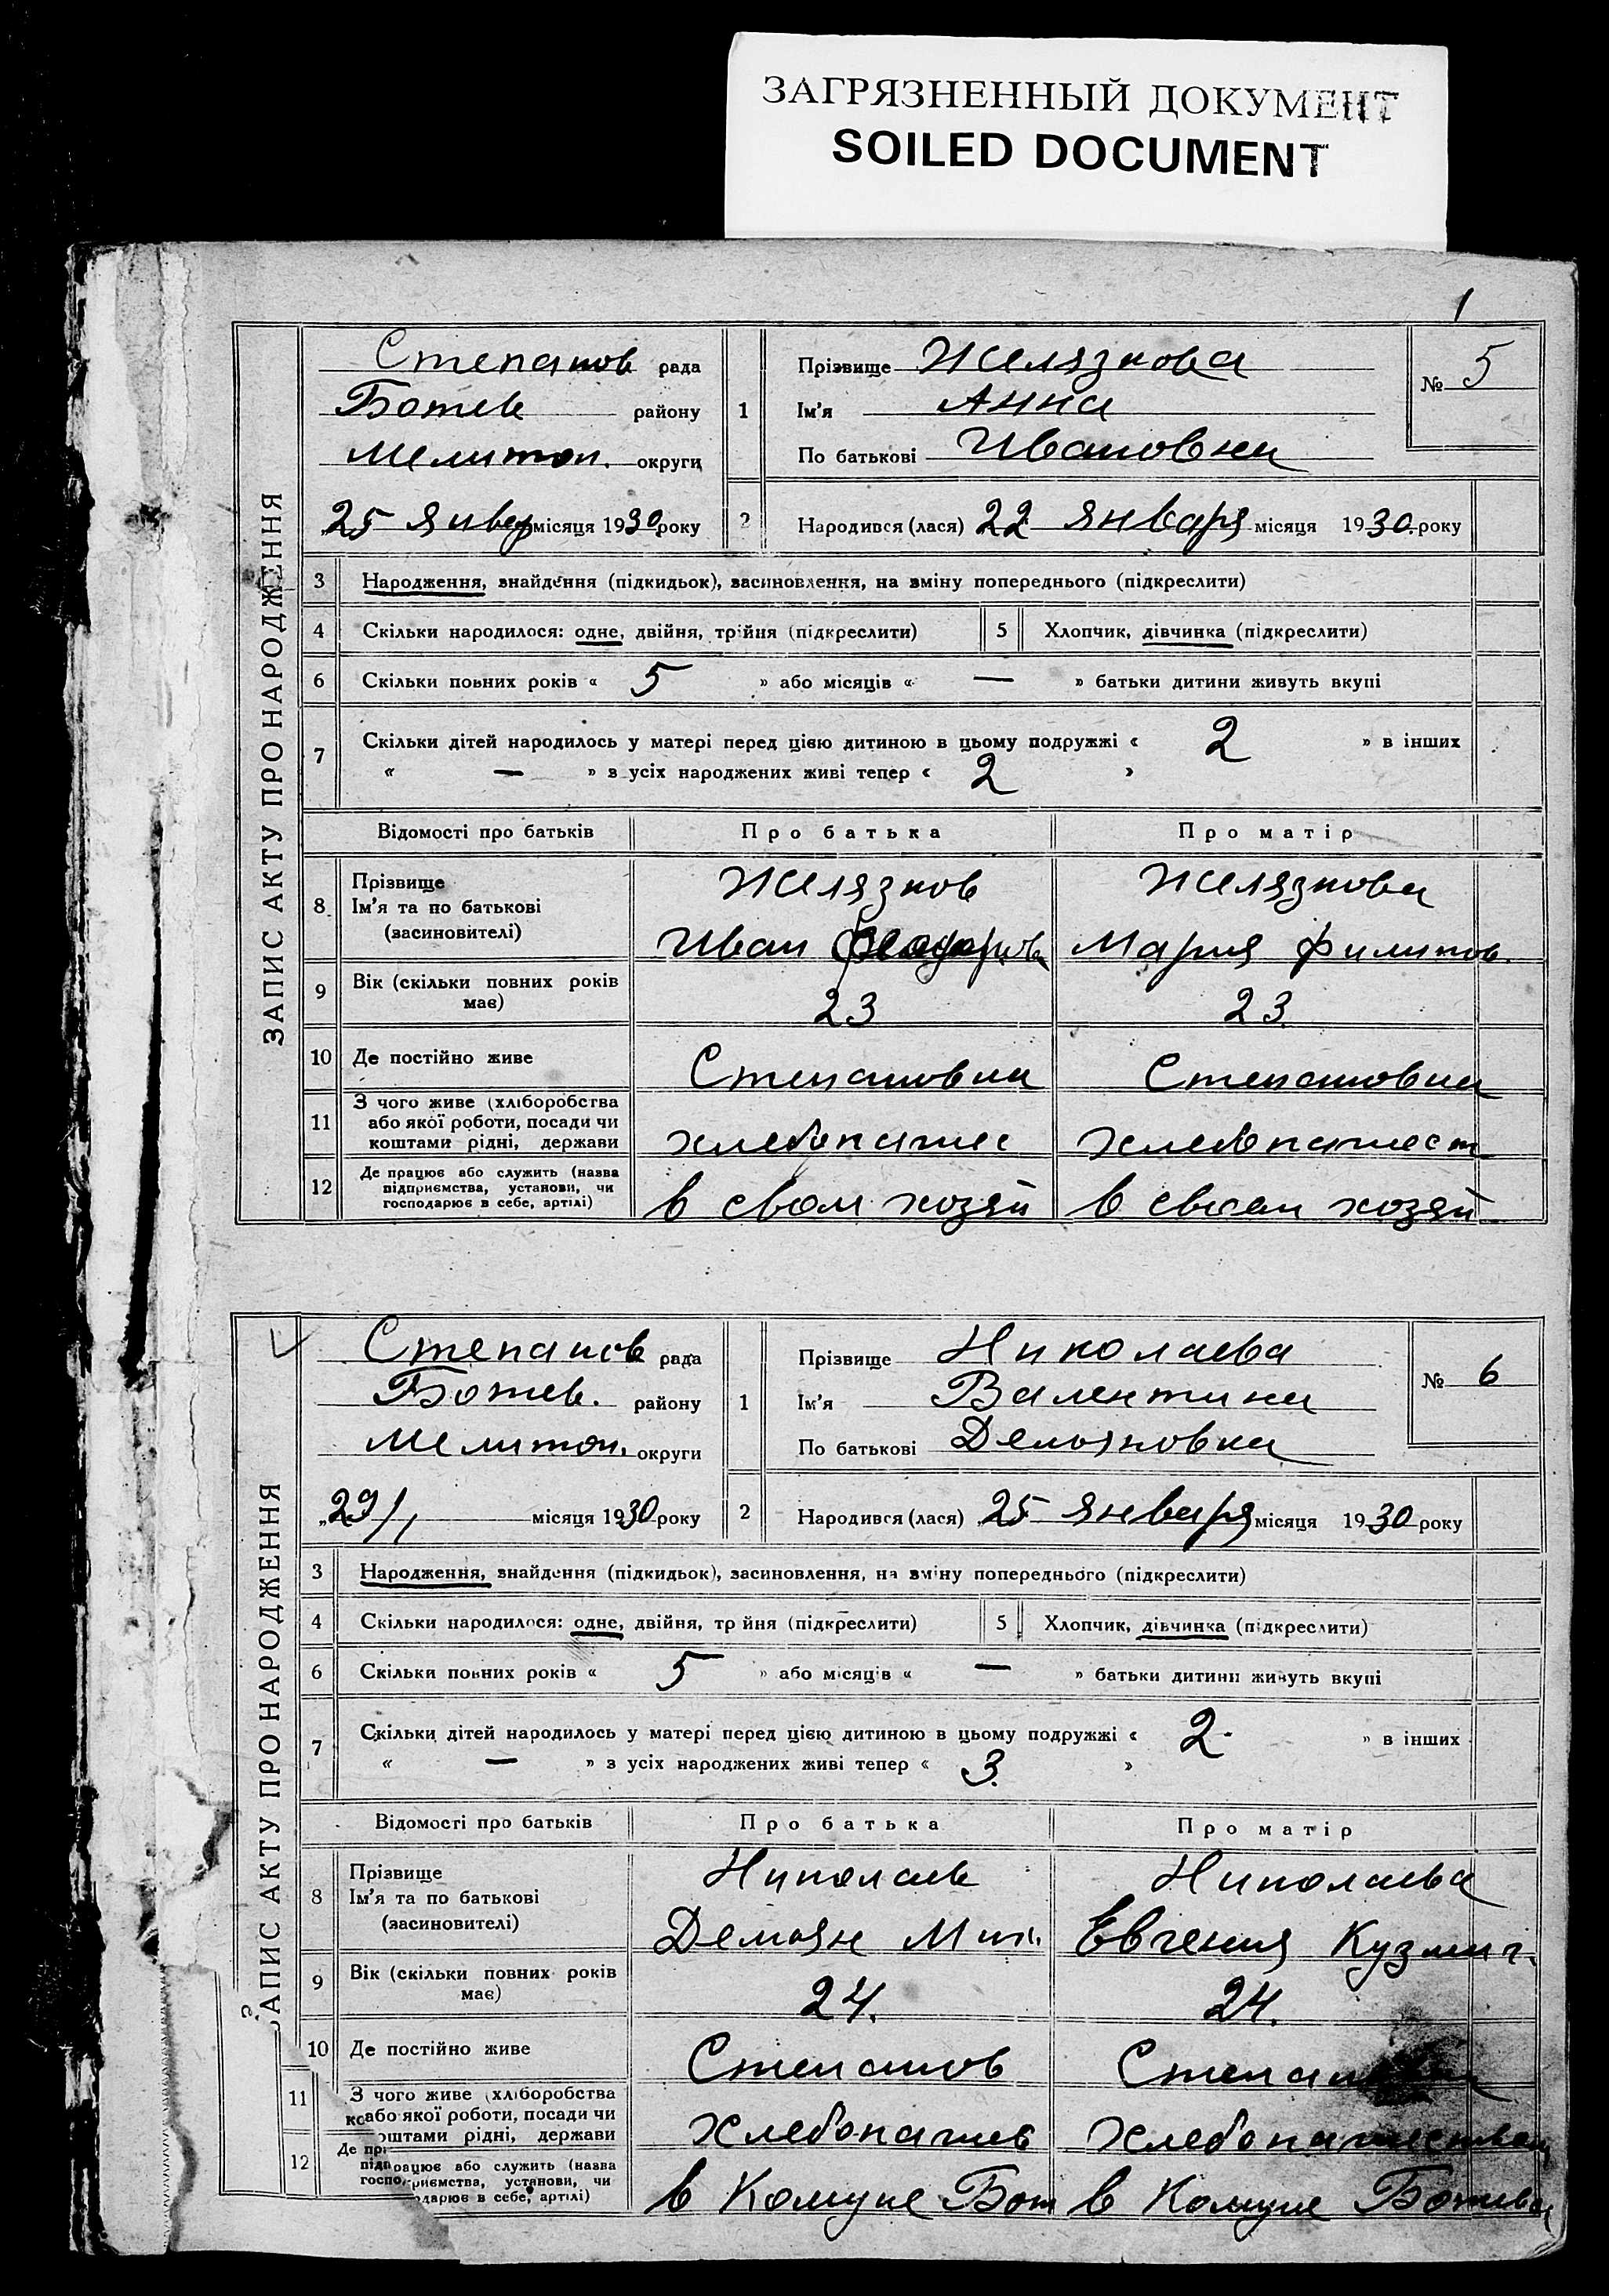 ЗАГРЯЗНЕННЫЙ ДОКУМЕНТ
SOILED DOCUMENT
1
ЗАПИС АКТУ ПРО НАРОДЖЕННЯ
Степанов рада
Ботев району
Мелитоп. округи
25 январ місяця 1930 року
1 Прізвище Желязкова
Ім'я Анна
По батькові Ивановна
№ 5
2 Народився (лася) 22 января місяця 1930. року
3 Народження, знайдення (підкидьок), засиновлення, на зміну попереднього (підкреслити)
4 Скільки народилося: одне, двійня, трійня (підкреслити) 5 Хлопчик, дівчинка (підкреслити)
6 Скільки повних років « 5 » або місяців « — » батьки дитини живуть вкупі
7 Скільки дітей народилось у матері перед цією дитиною в цьому подружжі « 2 » в інших
« — » з усіх народжених живі тепер « 2 »
Відомості про батьків Про батька Про матір
8 Прізвище Ім'я та по батькові (засиновителі)
Желязков Желязкова
Иван Мария Филипов.
9 Вік (скільки повних років має) 23 23
10 Де постійно живе Степановка Степановка
11 З чого живе (хліборобства або якої роботи, посади чи коштами рідні, держави
хлебопашес хлебопашест
12 Де працює або служить (назва підприємства, установи, чи господарює в себе, артілі)
в свом хозяй в своем хозяй
ЗАПИС АКТУ ПРО НАРОДЖЕННЯ
Степанов рада
Ботев. району
Мелитоп. округи
29/1 місяця 1930 року
1 Прізвище Николаева
Ім'я Валентина
По батькові Демьяновна
№ 6
2 Народився (лася) 25 января місяця 1930 року
3 Народження, знайдення (підкидьок), засиновлення, на зміну попереднього (підкреслити)
4 Скільки народилося: одне, двійня, трійня (підкреслити) 5 Хлопчик, дівчинка (підкреслити)
6 Скільки повних років « 5 » або місяців « — » батьки дитини живуть вкупі
7 Скільки дітей народилось у матері перед цією дитиною в цьому подружжі « 2 » в інших
« — » з усіх народжених живі тепер « 3. »
Відомості про батьків Про батька Про матір
8 Прізвище Ім'я та по батькові (засиновителі)
Николаев Николаева
Демьян Евгения Кузмин.
9 Вік (скільки повних років має) 24. 24.
10 Де постійно живе Степанов
11 З чого живе (хліборобства або якої роботи, посади чи коштами рідні, держави
хлебопашев хлебопашеством
12 Де працює або служить (назва підприємства, установи, чи господарює в себе, артілі)
в Комуне Бот в Комуне Ботева